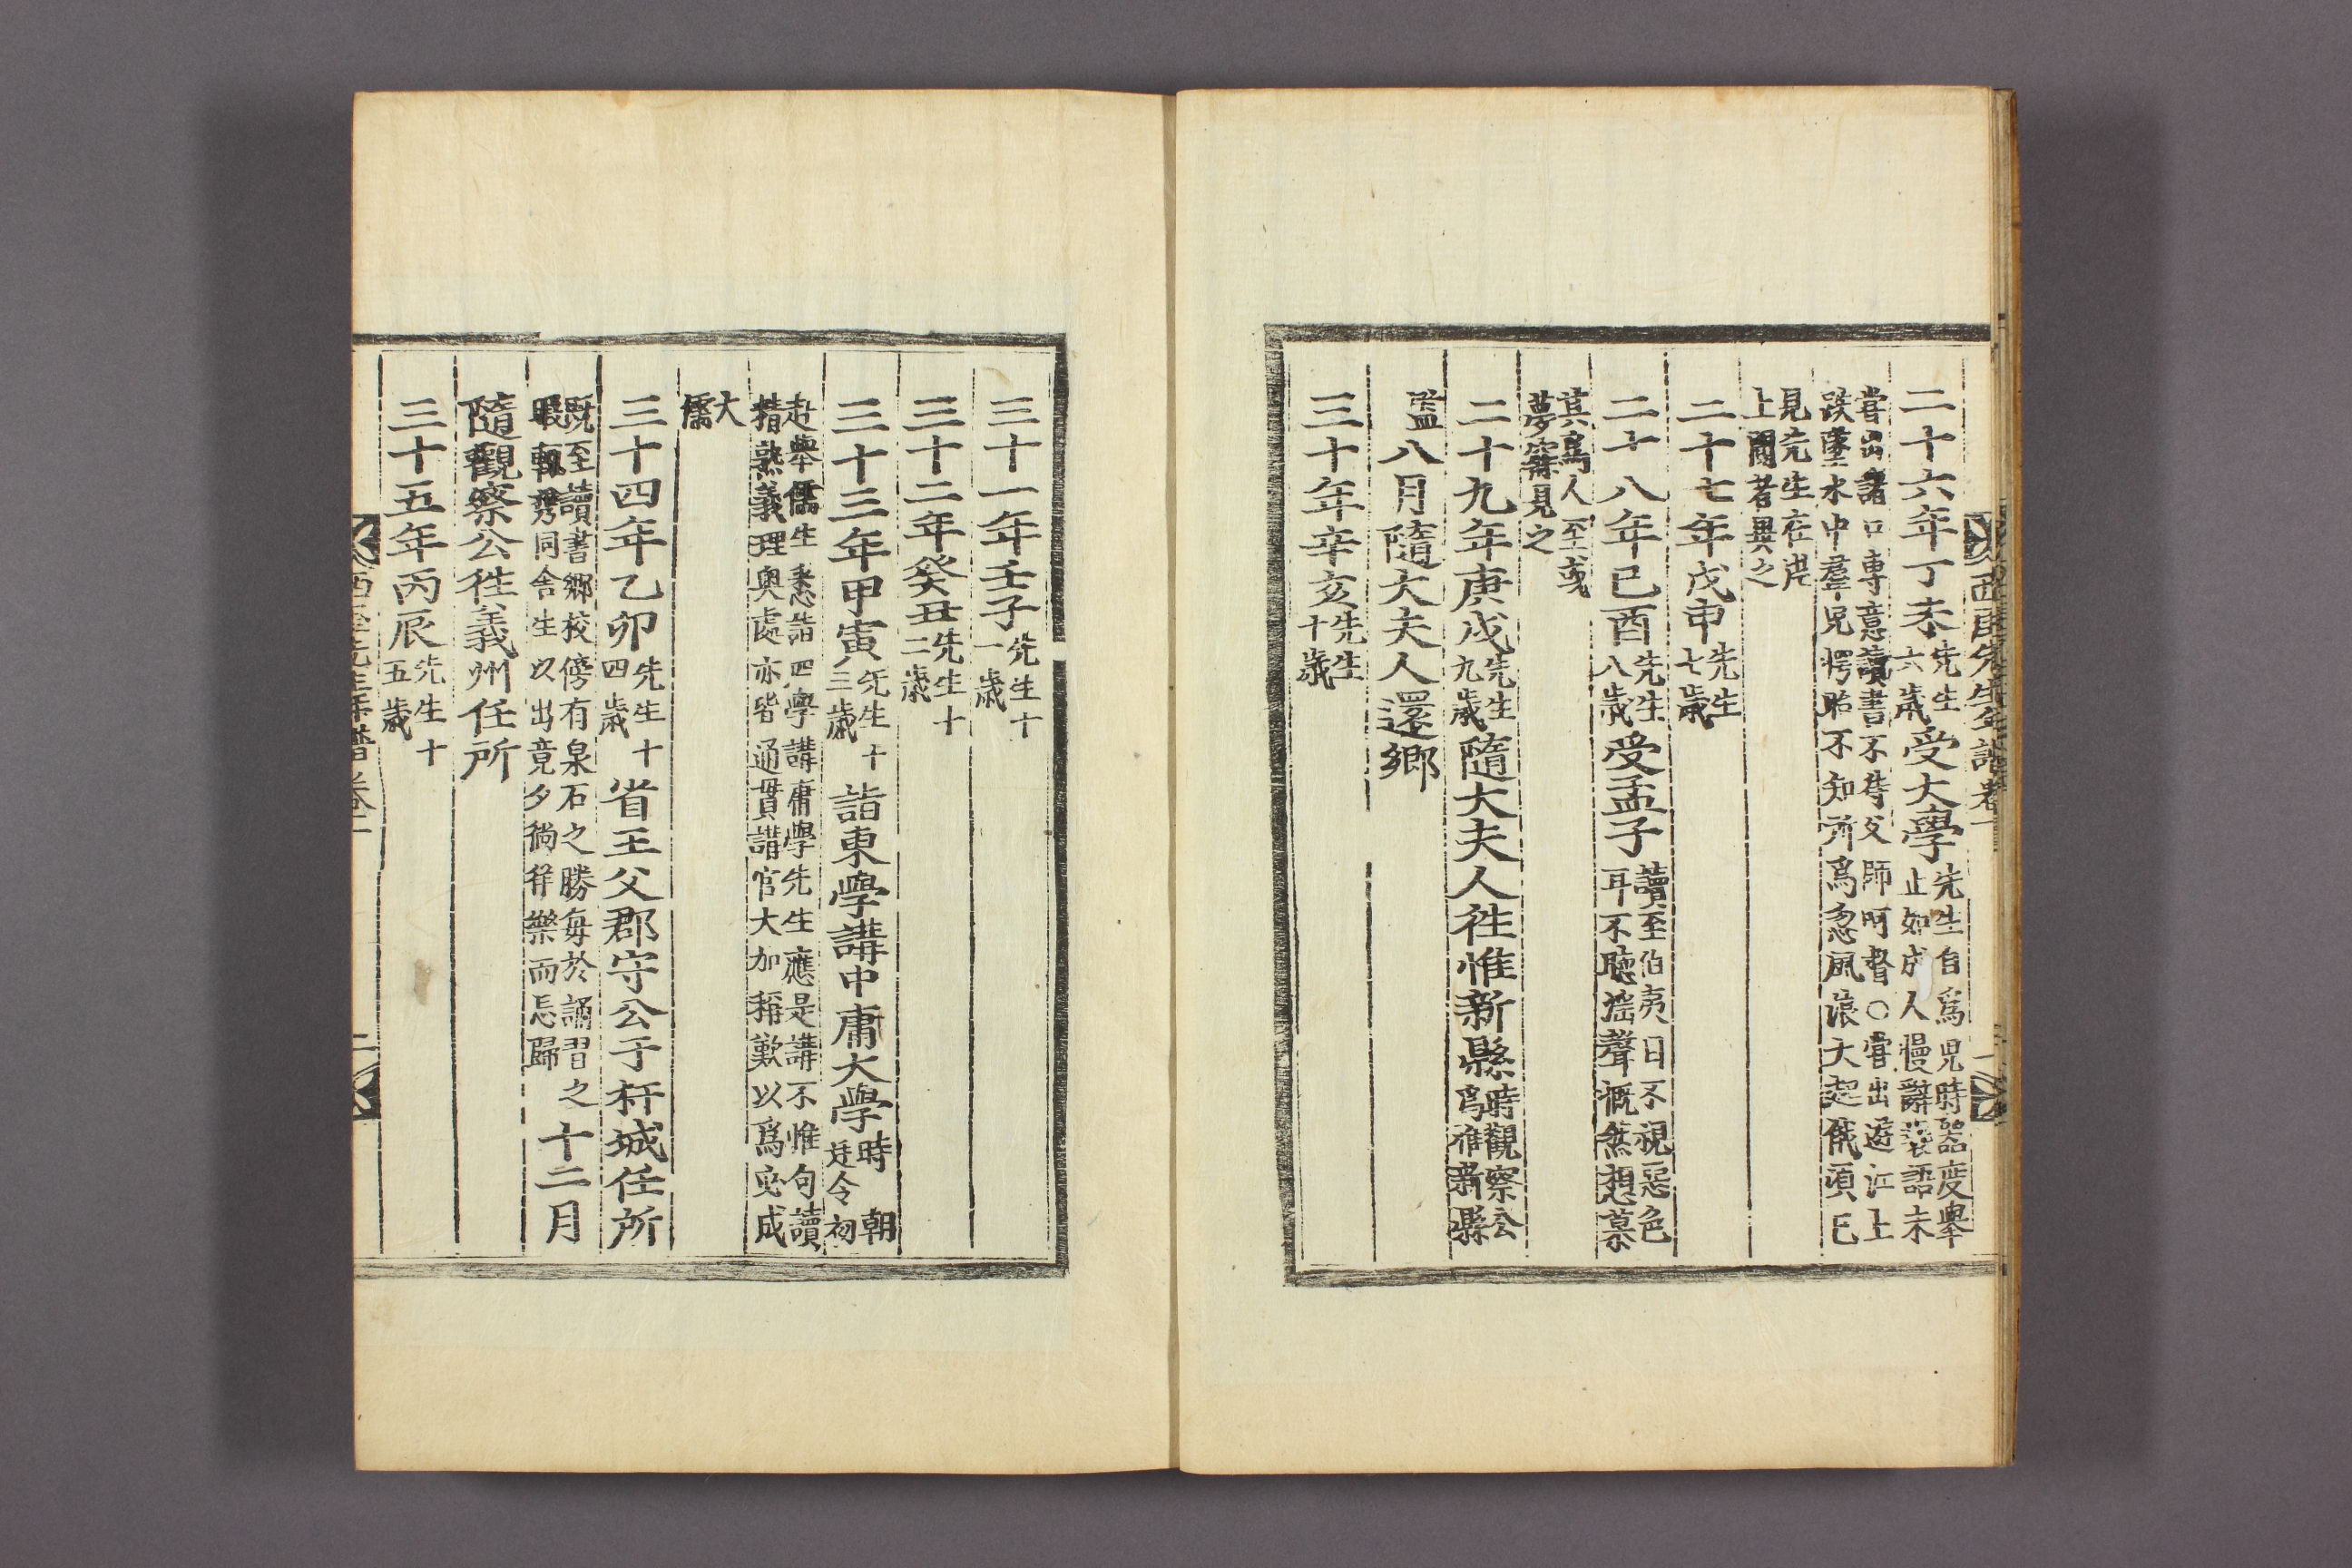 西厓先生年譜卷一
二十六年丁未先生六歲受大學先生自爲兒時器度擧止如成人慢辭褻語未
嘗出諸口專意讀書不待父師呵督○嘗出遊江上跌墜水中羣兒愕眙不知所爲忽風浪大起俄頃已
見先生在岸上聞者異之
二十七年戊申先生七歲
二十八年己酉先生八歲受孟子讀至伯夷目不視惡色耳不聽淫聲慨然想慕
其爲人至或夢寐見之
二十九年庚戌先生九歲隨大夫人往惟新縣時觀察公爲惟新縣
監八月隨大夫人還鄉
三十年辛亥先生十歲
三十一年壬子先生十一歲
三十二年癸丑先生十二歲
三十三年甲寅先生十三歲詣東學講中庸大學時朝廷令初
赴擧儒生悉詣四學講庸學先生應是講不惟句讀精熟義理奧處亦皆通貫講官大加稱歎以爲必成
大儒
三十四年乙卯先生十四歲省王父郡守公于杆城任所
旣至讀書鄉校傍有泉石之勝每於誦習之暇輒携同舍生以出竟夕徜徉樂而忘歸十二月
隨觀察公往義州任所
三十五年丙辰先生十五歲
西厓先生年譜卷一
二